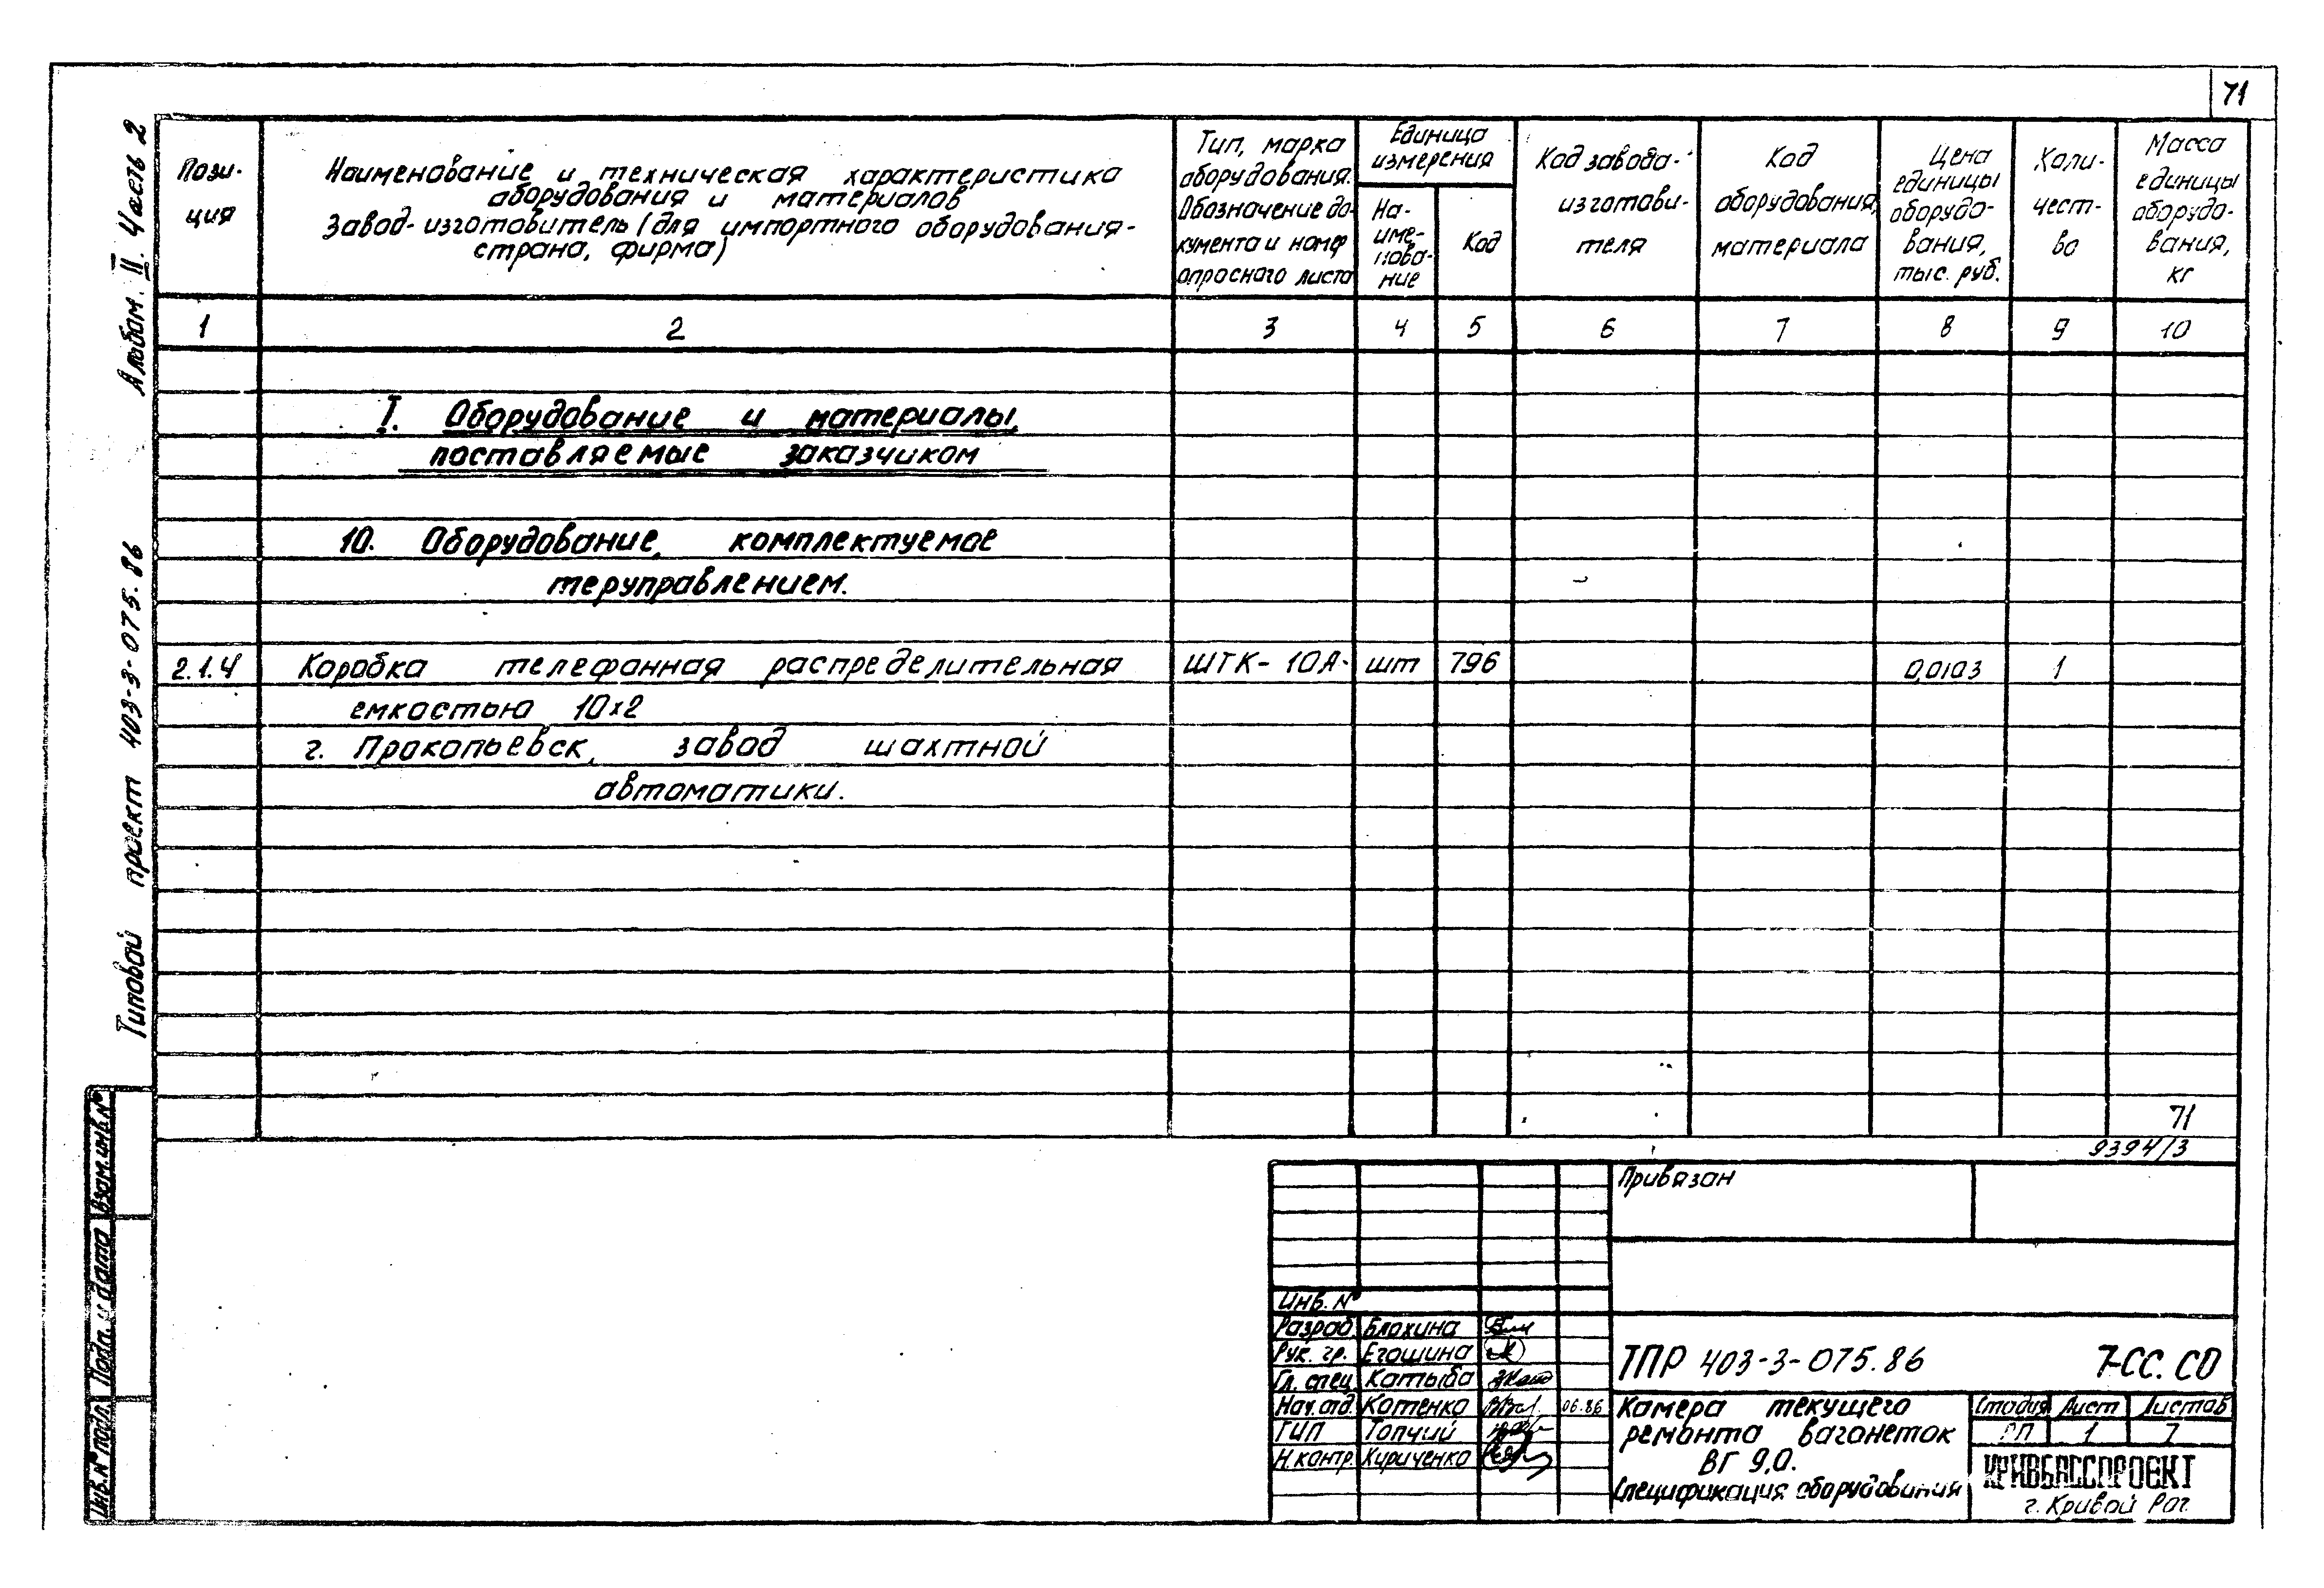 71
Альбом. II. Часть 2
Типовой проект 403-3-075.86
Пози-
ция
Наименование и техническая характеристика
оборудования и материалов
Завод-изготовитель (для импортного оборудования-
страна, фирма)
Тип, марка
оборудования.
Обозначение до-
кумента и номер
опросного листа
Единица
измерения
На-
име-
нова-
ние
Код
Код завода-
изготови-
теля
Код
оборудования,
материала
Цена
единицы
оборудо-
вания,
тыс. руб.
Коли-
чест-
во
Масса
единицы
оборудо-
вания,
кг
1 2 3 4 5 6 7 8 9 10
I. Оборудование и материалы,
поставляемые заказчиком
10. Оборудование, комплектуемое
теруправлением.
2.1.4 Коробка телефонная распределительная ШТК-10А шт 796 0,0103 1
емкостью 10×2
г. Прокопьевск, завод шахтной
автоматики.
71
9394/3
Взам.инв.№
Подп. и дата
Инв.№ подл.
Привязан
Инв. №
Разраб. Блохина
Рук. гр. Егошина
Гл. спец Катыба
Нач. отд. Котенко 06.86
ГИП Топчий
Н.контр. Кириченко
ТПР 403-3-075.86 7-СС.СО
Камера текущего
ремонта вагонеток
ВГ 9,0.
Спецификация оборудования
Стадия Лист Листов
РП 1 7
КРИВБАССПРОЕКТ
г. Кривой Рог